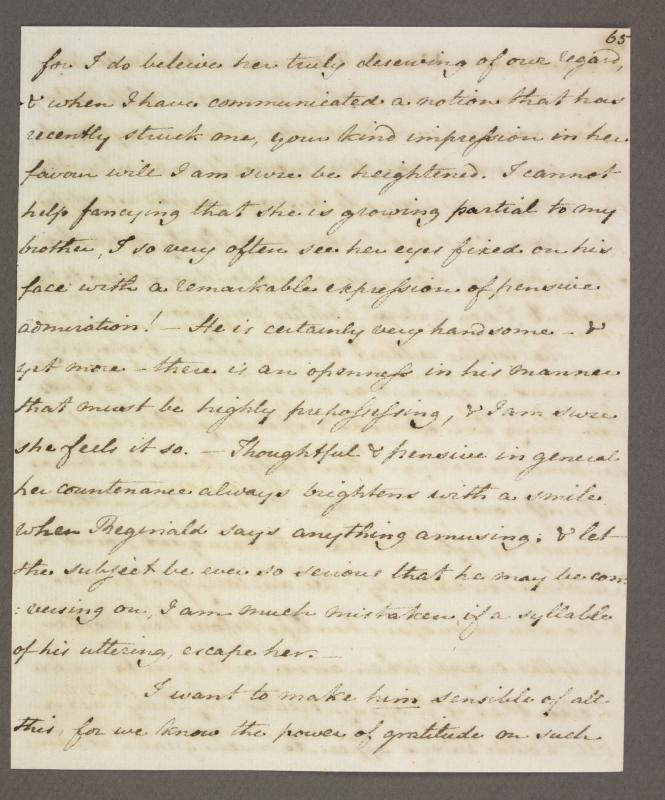 65
for I do beleive her truly deserving of our regard,
& when I have communicated a notion that has
recently struck me, your kind impression in her
favour will I am sure be heightened. I cannot
help fancying that she is growing partial to my
brother, I so very often see her eyes fixed on his
face with a remarkable expression of pensive
admiration! — He is certainly very handsome — &
yet more — there is an openness in his manner
that must be highly prepossessing, & I am sure
she feels it so. — Thoughtful & pensive in general
her countenance always brightens with a smile
when Reginald says anything amusing; & let
the subject be ever so serious that he may be con
: versing on, I am much mistaken if a syllable
of his uttering, escape her. —
I want to make him sensible of all
this, for we know the power of gratitude on such